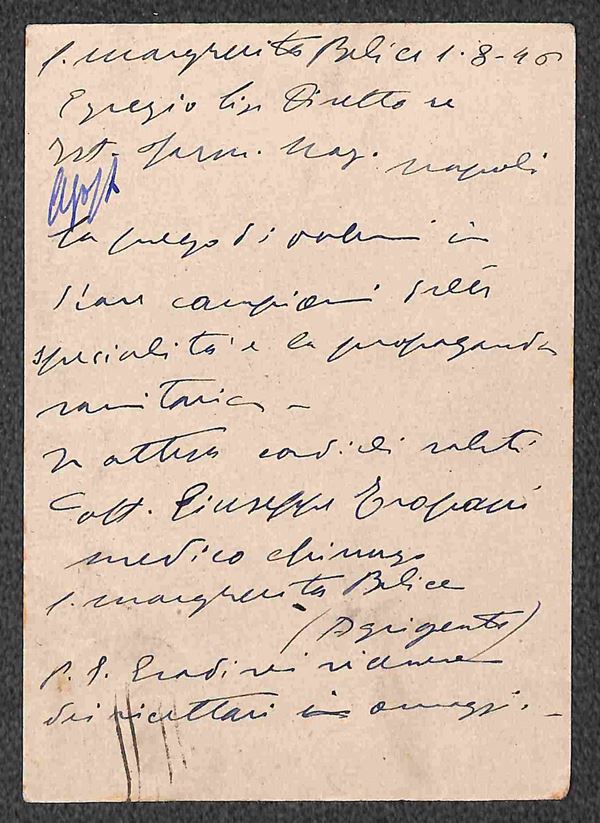 S. Margherita Belice 1-8-46
Egregio Sig. Direttore
Ist. Farm. Naz. Napoli
La prego di volermi in
viare campioni delle
specialità e la propaganda
sanitaria -
In attesa cordiali saluti
Dott. Giuseppe Trapani
medico chirurgo
S. Margherita Belice
(Agrigento)
P.S. Gradirei ricevere
dei ricettari in omaggio. -